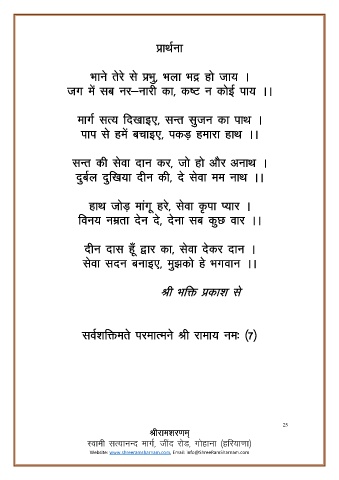 प्रार्थना
भाने तेरे से प्रभु, भला भद्र हो जाय ।
जग में सब नर–नारी का, कष्ट न कोई पाय ।।
मार्ग सत्य दिखाइए, सन्त सुजन का पाथ ।
पाप से हमें बचाइए, पकड़ हमारा हाथ ।।
सन्त की सेवा दान कर, जो हो और अनाथ ।
दुर्बल दुखिया दीन की, दे सेवा मम नाथ ।।
हाथ जोड़ मांगू हरे, सेवा कृपा प्यार ।
विनय नम्रता देन दे, देना सब कुछ वार ।।
दीन दास हूँ द्वार का, सेवा देकर दान ।
सेवा सदन बनाइए, मुझको हे भगवान ।।
श्री भक्ति प्रकाश से
सर्वशक्तिमते परमात्मने श्री रामाय नमः (7)
25
श्रीरामशरणम्
स्वामी सत्यानन्द मार्ग, जींद रोड, गोहाना (हरियाणा)
Website: www.shreeramsharnam.com, Email: info@ShreeRamSharnam.com